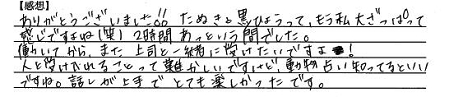 【感想】
ありがとうございました!! たぬきと黒ひょうって、もう私大ざっぱって
感じですよね(笑) 2時間あっという間でした。
働いてから、また上司と一緒に受けたいですよ!
人と受け入れることって難かしいですけど、動物占い知ってるといい
ですね。話しが上手でとても楽しかったです。